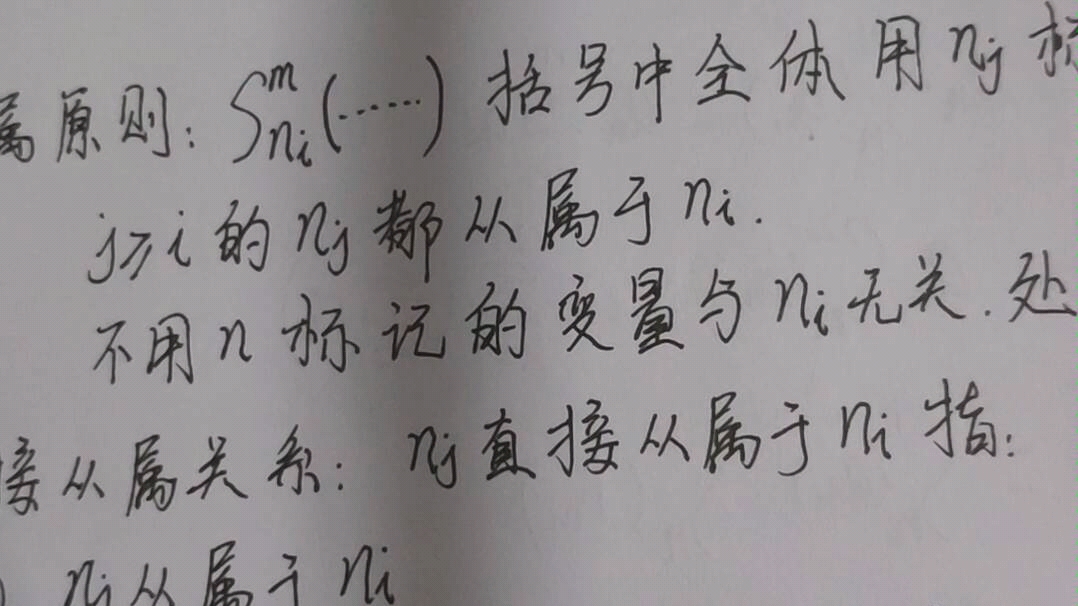 属原则: S^m_{n_i}(……) 括号中全体用 n_j 标
j≥i 的 n_j 都从属于 n_i.
不用 n 标记的变量与 n_i 无关. 处
接从属关系: n_j 直接从属于 n_i 指:
) n_j 从属于 n_i